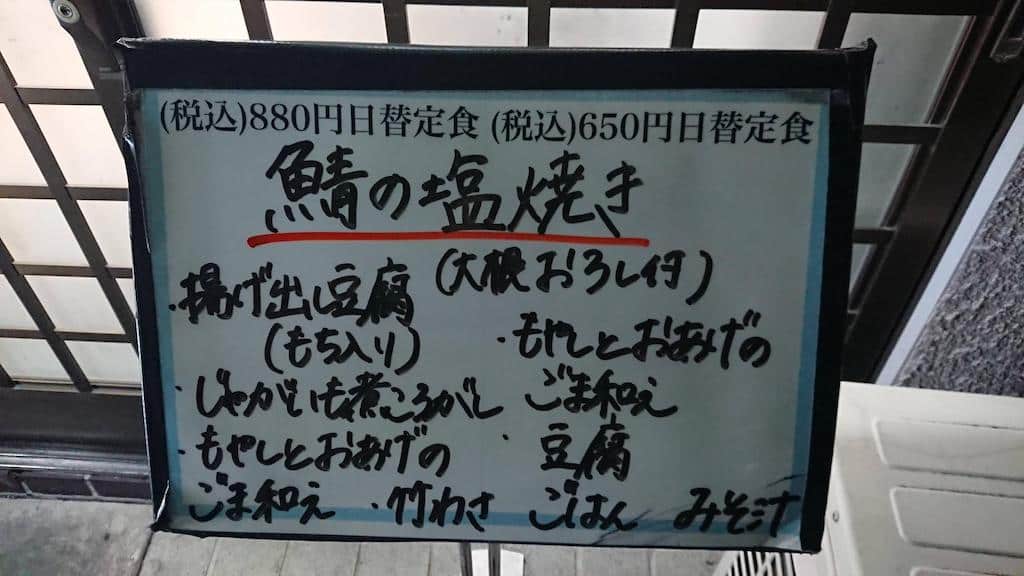 (税込)880円日替定食 (税込)650円日替定食
鯖の塩焼き
(大根おろし付)
・揚げ出し豆腐
(もち入り)
・じゃがいも煮ころがし
・もやしとおあげの
ごま和え ・竹わさ
・もやしとおあげの
ごま和え
・豆腐
ごはん みそ汁